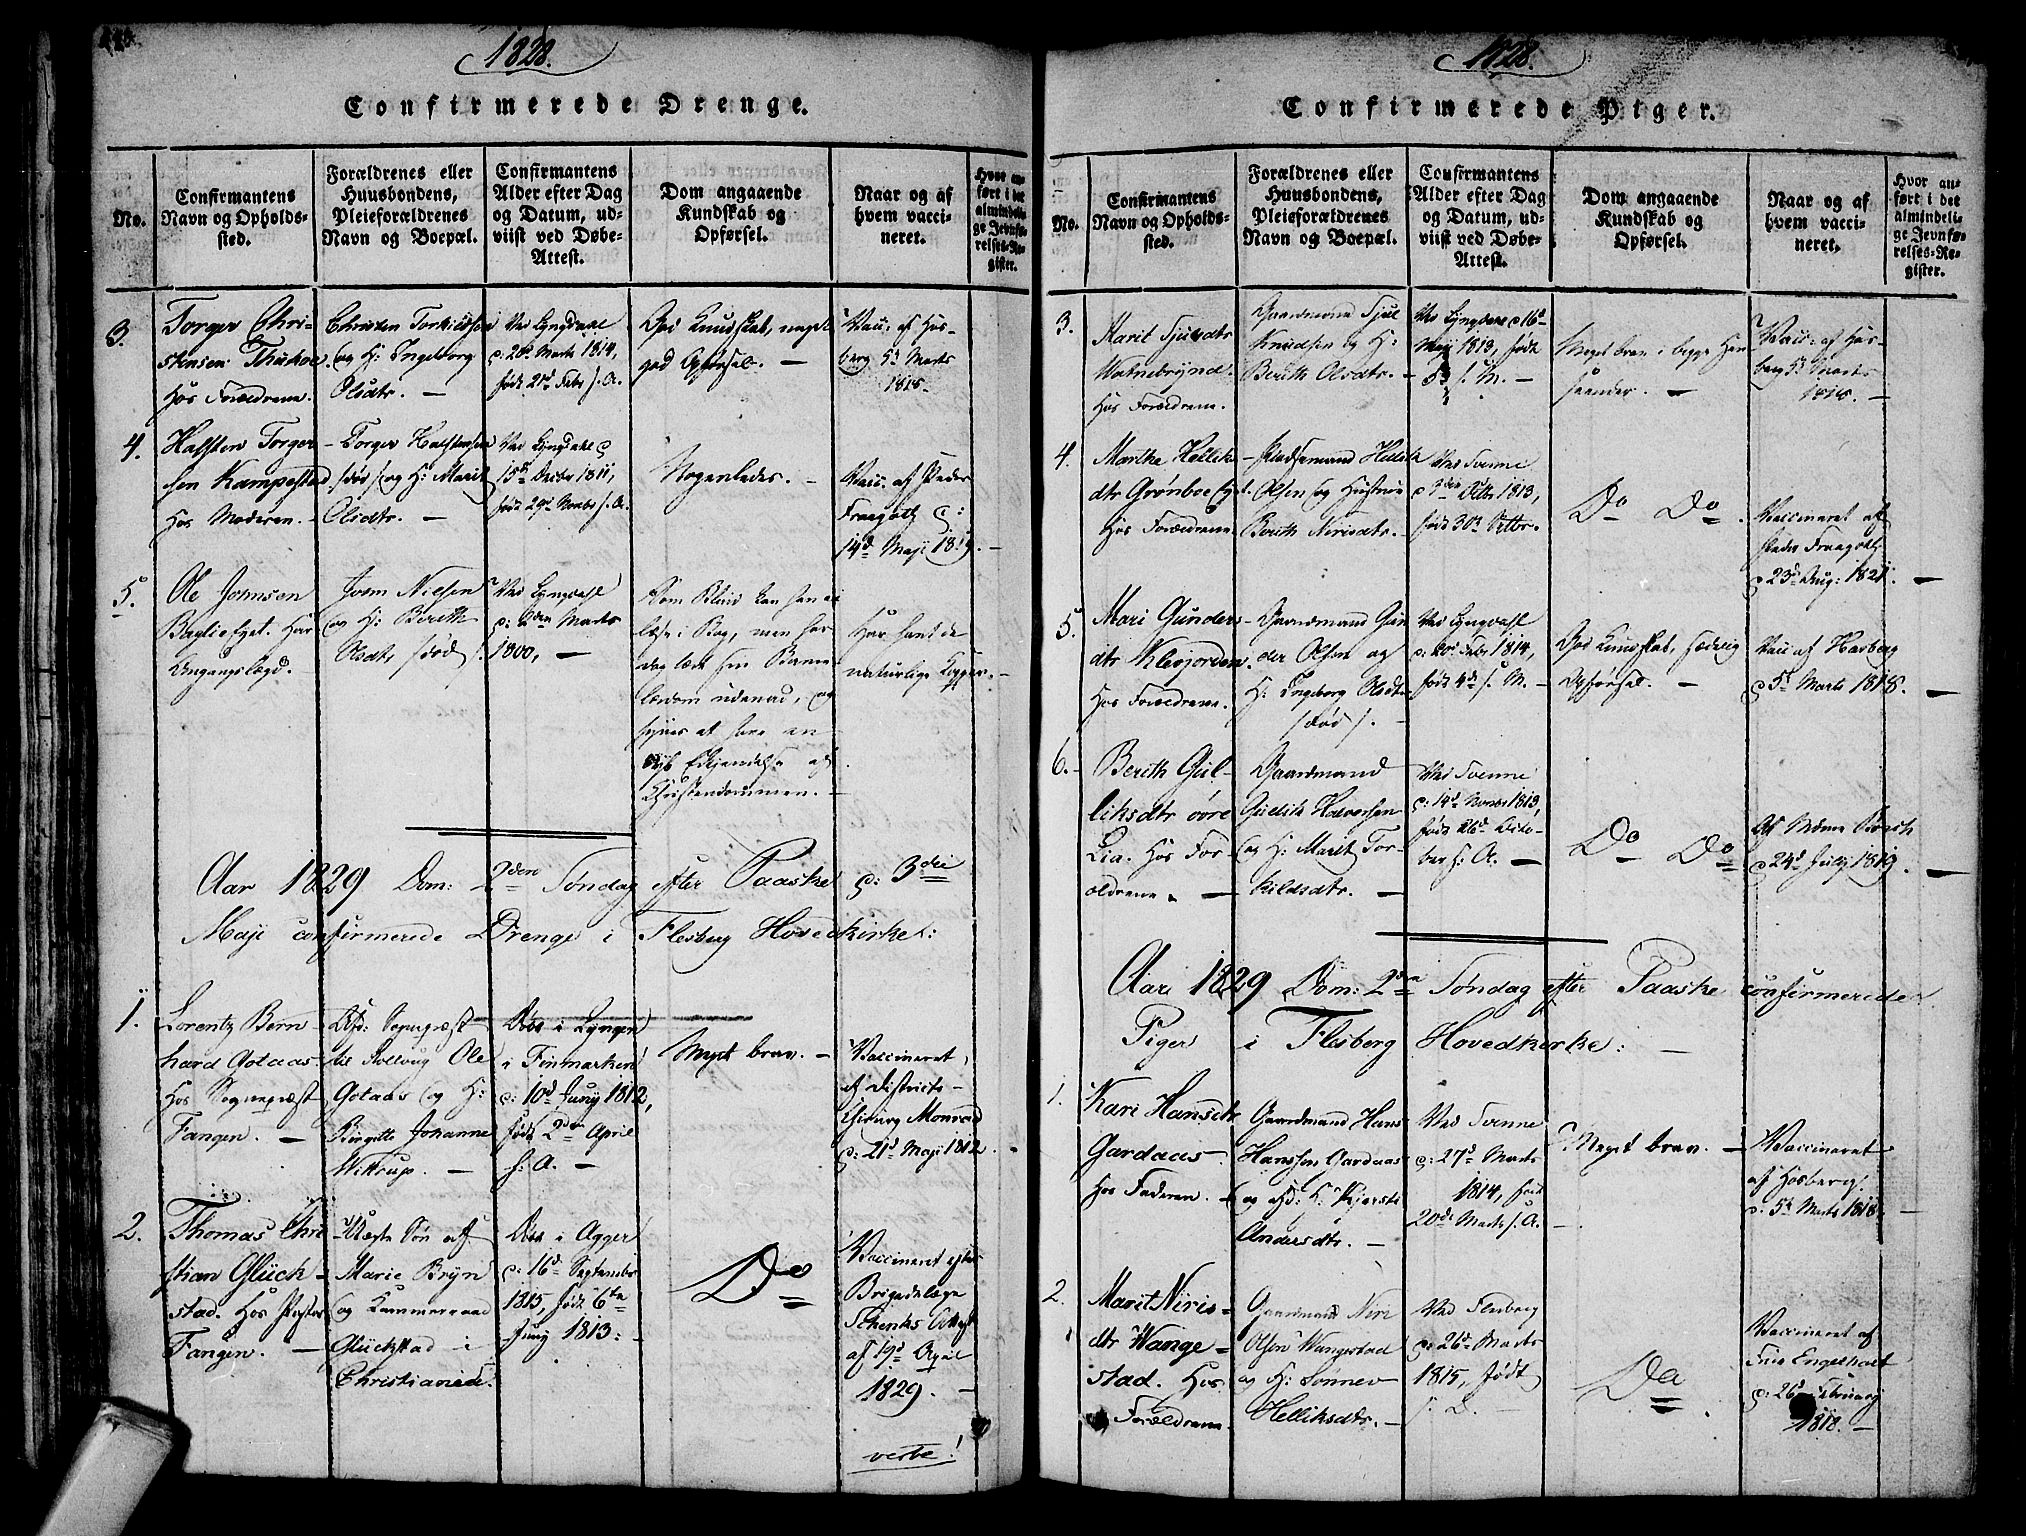 1828.
Confirmerede Drenge.
No.
Confirmantens
Navn og Opholds-
sted.
Forældrenes eller
Huusbondens,
Pleieforældrenes
Navn og Boepæl.
Confirmantens
Alder efter Dag
og Datum, ud-
viist ved Døbe-
Attest.
Dom angaaende
Kundskab og
Opførsel.
Naar og af
hvem vacci-
neret.
Hvor an-
ført i det
almindeli-
ge Jevnfø-
relses-Re-
gister.
3.
Torger Chri-
stensen
Hos Forældrene.
Christen Torkildsen
og H: Ingeborg
Olsdtr. —
Ved Lyngdahl
1814,
født 21d Febr s. A.
God Kundskab, meget
god Opførsel. —
Vacc: af Hos-
berg 5d Marts
1818.
4.
Halsten Torger-
sen Kampestad
Hos Moderen. —
Torger Halstensen
/død/ og H: Marit
Olsdtr. —
Ved Lyngdahl
15de Decbr 1811,
født 29d Novbr s. A.
Nogenledes. —
Vacc: af Peder
Fraagott
14d Maji 1819. —
5.
Ole Jonnsen
Baglie Eyet. Har
Omgangslægd.
Joen Nielsen
og H: Berith
Olsdtr /død/.
Ved Lyngdahl
Marts
1800, —
Som Blind kan han ei
læse i Bog, men har
dog lært sin Børne-
lærdom udenad, og
synes at have en
Erkjendelse af
Christendommen. —
Har havt de
naturlige Kopper. —
Aar 1829 Dom: 2den Søndag efter Paaske d: 3die
Maji confirmerede Drenge i Flesberg Hovedkirke:
1.
Lorentz Bern-
hard Gotaas
Hos Sognepræst
Fangen. —
Afd: Sognepræst
til Sollvug Ole
Gotaas og H:
Birgitte Johanne
Wittrup. —
Døbt i Lyngen
i Finmarken
d: 10d Juny 1812,
født 2den April
s: A. —
Meget brav. —
Vaccineret
af Districts-
Chirurg Monrad
d: 21d Maji 1812.
2.
Thomas Chri-
stian Glück-
stad. Hos Pastor
Fangen. —
Uægte Søn af
Marie Bryn
og Kammerraad
Glückstad i
Christiania.
Døbt i Agger
d: 16d September
1815, født 6te
Juny 1813: —
Do
Vaccineret efter
Brigadelæge
Schenks Attest
af 19d April
1829. —
verte!
1828.
Confirmerede Piger.
No.
Confirmantens
Navn og Opholds-
sted.
Forældrenes eller
Huusbondens,
Pleieforældrenes
Navn og Boepæl.
Confirmantens
Alder efter Dag
og Datum, ud-
viist ved Døbe-
Attest.
Dom angaaende
Kundskab og
Opførsel.
Naar og af
hvem vacci-
neret.
Hvor an-
ført i det
almindeli-
ge Jevnfø-
relses-Re-
gister.
3.
Marit Sjulsdtr
Watnebrynd
Hos Forældrene.
Gaardmand Sjul
Knudsen og H:
Berith Olsdtr. —
Ved Lyngdahl d 16d
Maji 1813, født
s. M. —
Meget brav i begge Hen-
seender. —
Vacc: af Hos-
berg 5d Marts
1818. —
4.
Marthe Helliks-
dtr Grønboe Eyet.
Hos Forældrene.
Pladsemand Hellik
Olsen og Hustrue
Berith Nirisdtr. —
Ved Svenne
Octbr 1813,
født 30d Septbr. —
Do Do.
Vaccineret af
Peder Fraagott
d 23d Aug: 1821. —
5.
Mari Gunders-
dtr Klevjorden.
Hos Forældrene.
Gaardmand Gun-
der Olsen og
H: Ingeborg Olsdtr
/død/. —
Ved Lyngdahl
d: 20d Febr 1814,
født 4d s. M. —
God Kundskab, sædelig
Opførsel. —
Vacc: af Hosberg
d 5d Marts 1818. —
6. —
Berith Gul-
liksdtr øvre
Lia. Hos For-
ældrene. —
Gaardmand
Gullik Halvorsen
og H: Marit Tor-
kildsdtr. —
Ved Svenne
d: 14d Novbr 1813,
født 26d Octo-
ber s: A. —
Do Do
d 24d July 1819. —
Aar 1829 Dom: 2den Søndag efter Paaske confirmerede
Piger i Flesberg Hovedkirke: —
1.
Kari Hansdtr
Gardaas.
Hos Faderen. —
Gaardmand Hans
Hanssen Gardaas
og afd: H: Kjersti
Andersdtr. —
Ved Svenne
d: 27d Marts
1814, født
20de Marts s. A. —
Meget brav. —
Vaccineret
af Hosberg
d: 5d Marts 1818. —
2.
Marit Niris-
dtr Wange-
stad. Hos
Forældrene
Gaardmand Niri
Olsen Wangestad
og H: Sønnev
Helliksdtr. —
Ved Flesberg
d: 26d Marts
1815, født
s. D. —
Do
Vaccineret af
Frue Engelhart
d: 26d Februar
1818. —